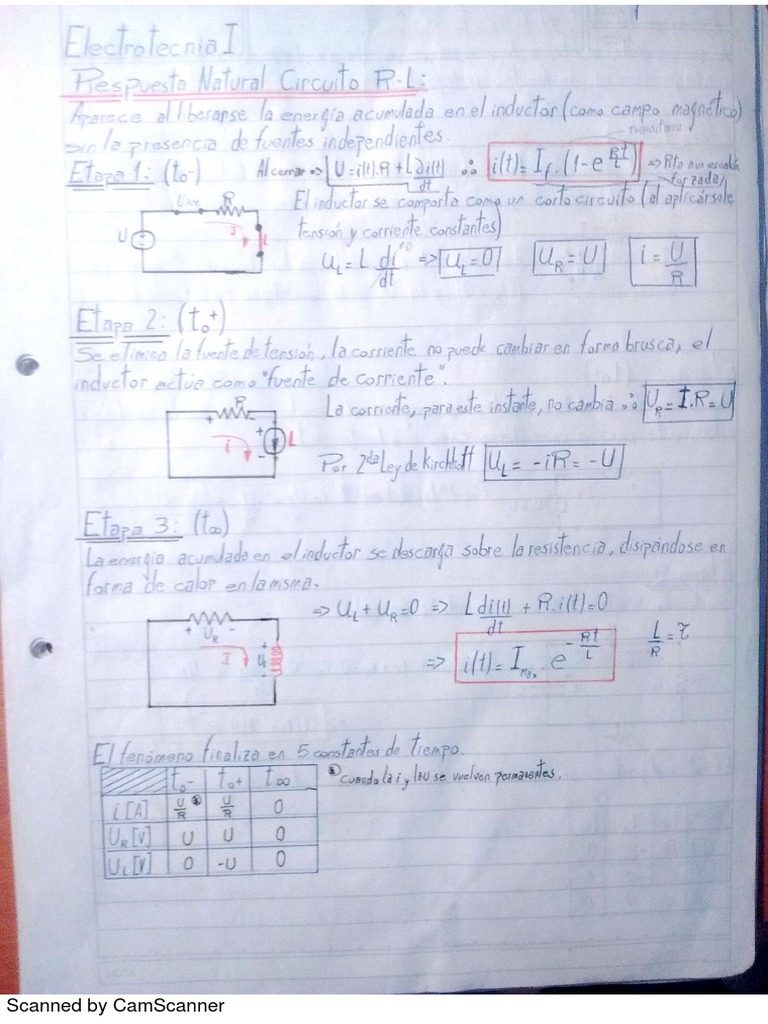 Electrotecnia I
Respuesta Natural Circuito R-L:
Aparece al liberarse la energía acumulada en el inductor (como campo magnético)
sin la presencia de fuentes independientes.
transitorio
Etapa 1: (t₀-) Al cerrar => U = i(t).R + L di(t)/dt ∴ i(t) = If . (1 - e^Rt/L) =>
forzada
El inductor se comporta como un cortocircuito (al aplicársele
tensión y corriente constantes)
U R I L
UL = L di/dt →0 => UL = 0 UR = U i = U/R
Etapa 2: (t₀+)
Se elimina la fuente de tensión, la corriente no puede cambiar en forma brusca, el
inductor actúa como "fuente de corriente".
R + - i + - L
La corriente, para este instante, no cambia ∴ UR = I.R = U
Por 2da Ley de Kirchhoff UL = -iR = -U
Etapa 3: (t∞)
La energía acumulada en el inductor se descarga sobre la resistencia, disipándose en
forma de calor en la misma.
+ UR - I + UL -
=> UL + UR = 0 => L di(t)/dt + R.i(t) = 0
L/R = τ
=> i(t) = IMax . e^-Rt/L
El fenómeno finaliza en 5 constantes de tiempo.
t₀- t₀+ t∞
* Cuando la i y la U se vuelven permanentes.
i [A] U/R * U/R 0
UR [V] U U 0
UL [V] 0 -U 0
Scanned by CamScanner